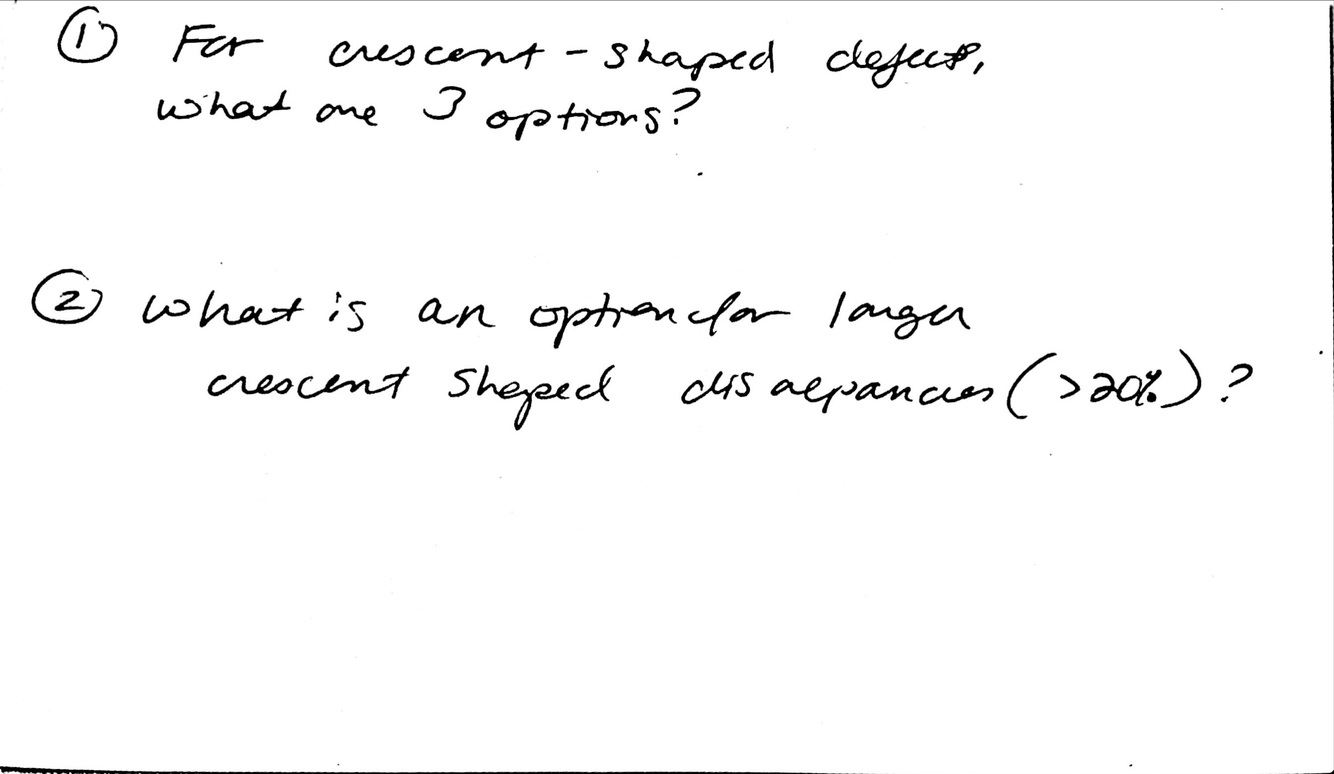 ① For crescent-shaped defects,
what are 3 options?
② What is an option for larger
crescent shaped discrepancies (>20%)?